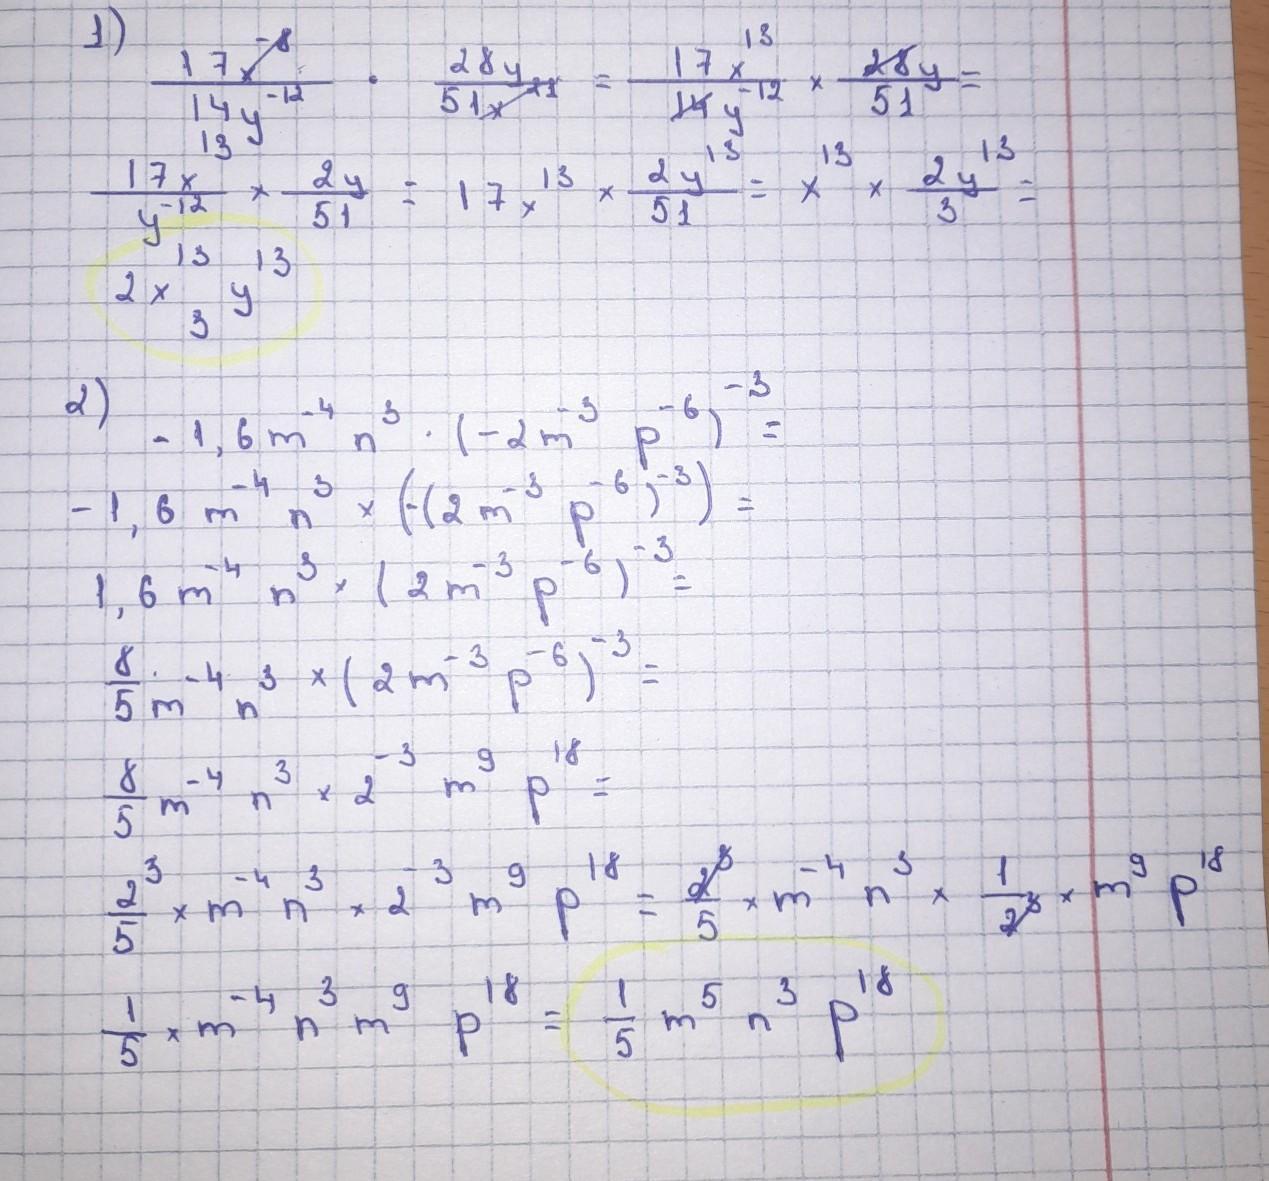 1)
17x^-8 / 14y^-12 · 28y / 51x = 17x^13 / 14y^-12 × 28y / 51 =
17x^13 / y^-12 × 2y / 51 = 17x^13 × 2y^13 / 51 = x^13 × 2y^13 / 3 =
2x^13 y^13 / 3
2)
-1,6m^-4 n^3 · (-2m^-3 p^-6)^-3 =
-1,6m^-4 n^3 × (-(2m^-3 p^-6)^-3) =
1,6m^-4 n^3 × (2m^-3 p^-6)^-3 =
8/5 m^-4 n^3 × (2m^-3 p^-6)^-3 =
8/5 m^-4 n^3 × 2^-3 m^9 p^18 =
2^3/5 × m^-4 n^3 × 2^-3 m^9 p^18 = 2^3/5 × m^-4 n^3 × 1/2^3 × m^9 p^18
1/5 × m^-4 n^3 m^9 p^18 = 1/5 m^5 n^3 p^18